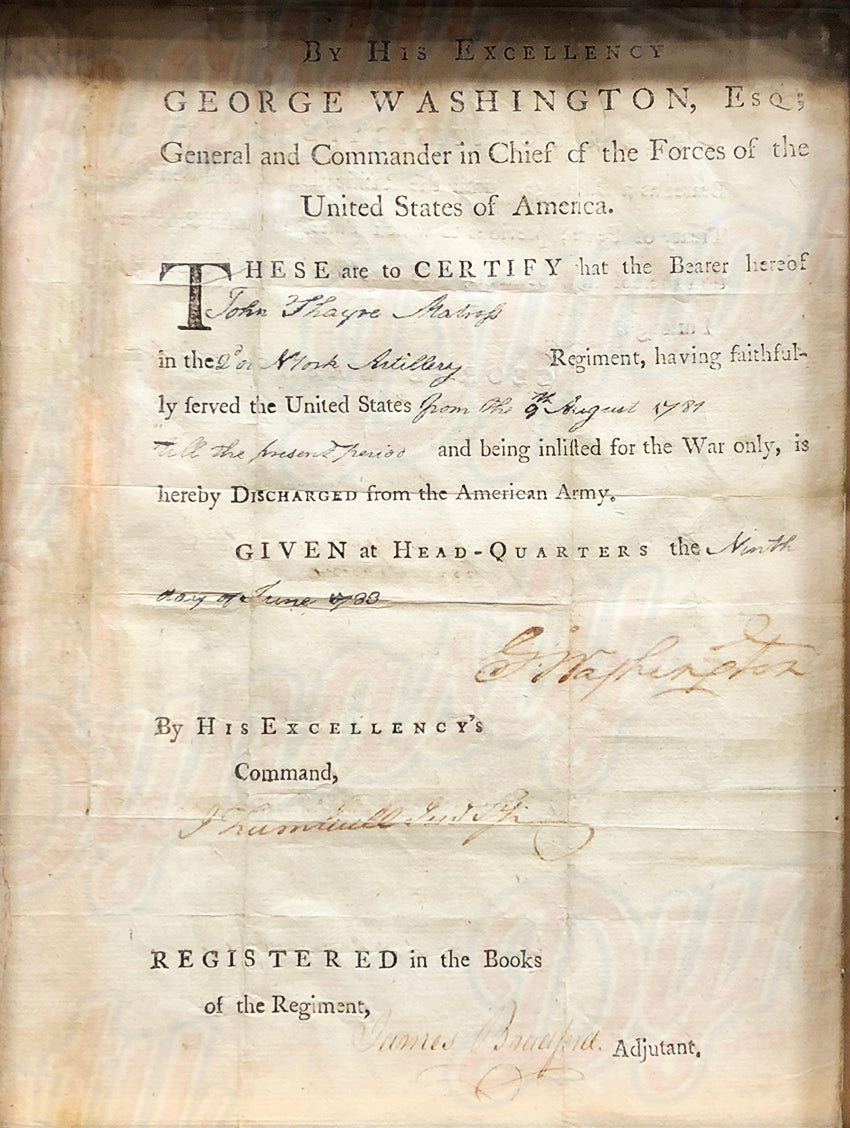 BY HIS EXCELLENCY
GEORGE WASHINGTON, ESQ;
General and Commander in Chief of the Forces of the
United States of America.
THESE are to CERTIFY that the Bearer hereof
John Thayre Matross
in the 2d N York Artillery Regiment, having faithful-
ly ſerved the United States from the 9th August 1781
till the present period and being inliſted for the War only, is
hereby DISCHARGED from the American Army.
GIVEN at HEAD-QUARTERS the Ninth
day of June 1783
G:Washington
By HIS EXCELLENCY'S
Command,
J Trumbull Jun
REGISTERED in the Books
of the Regiment,
James Bradford. Adjutant.